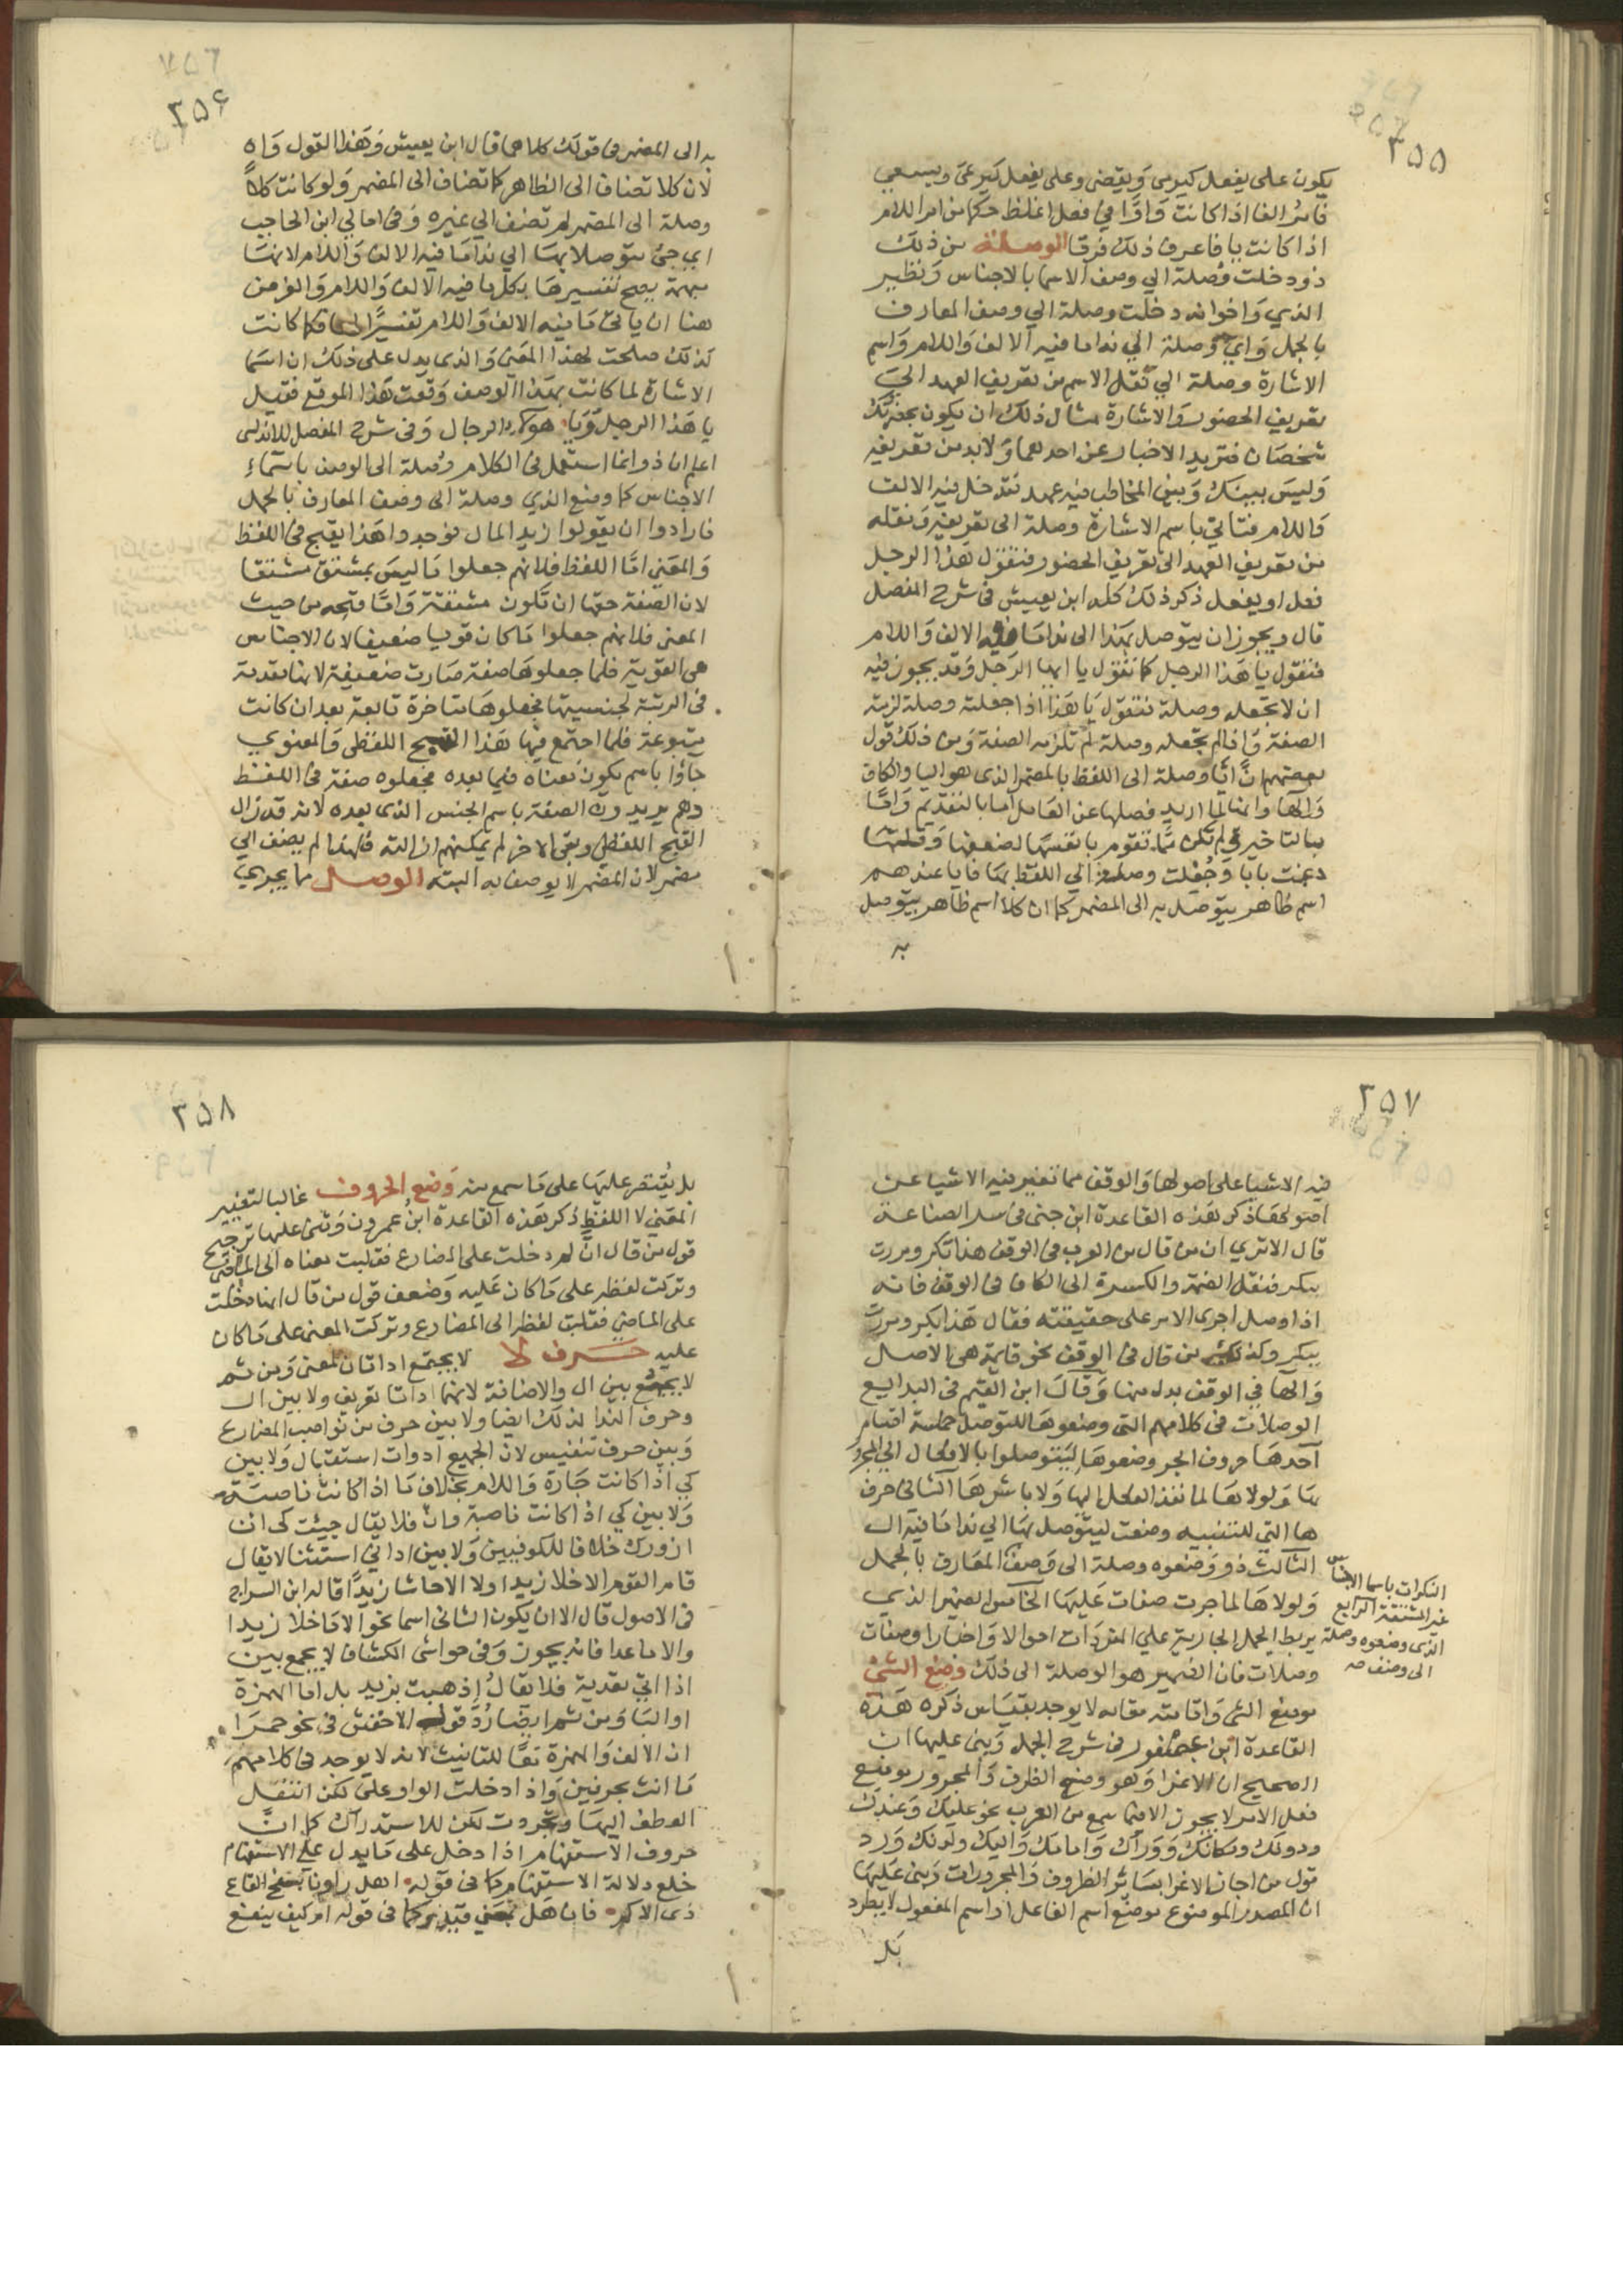 ٣٥٥
يكون على يفعل كيرمى ويقضى وعلى يفعل كيرعى ويسعى
فامر الفا اذا كانت واوا في فعل اغلظ حكما من امر اللام
اذا كانت يا فاعرف ذلك فرقا الوصلة من ذلك
ذو دخلت وصلة الي وصف الاسما بالاجناس ونظير
الذي واخواته دخلت وصلة الي وصف المعارف
بالجمل واي وصلة الي نداما فيه الالف واللام واسم
الاشارة وصلة الي نقل الاسم من تعريف العهد الي
تعريف الحضور والاشارة مثال ذلك ان يكون بحضرتك
شخصان فتريد الاخبار عن احدهما ولابد من تعريفه
وليس بينك وبين المخاطب فيه عهد فتدخل فيه الالف
واللام فتاتي باسم الاشارة وصلة الى تعريفه ونقله
من تعريف العهد الى تعريف الحضور فتقول هذا الرجل
فعل او يفعل ذكر ذلك كله ابن يعيش في شرح المفصل
قال ويجوز ان يتوصل بهذا الى نداما فيه الالف واللام
فتقول يا هذا الرجل كما تقول يا ايها الرجل وقد يجوز فيه
ان لا تجعله وصلة فتقول يا هذا اذا جعلته وصلة لزمته
الصفة واذا لم تجعله وصلة لم تلزمه الصفة ومن ذلك قول
بعضهم ان ايا وصلة الى اللفظ بالمضمر الذى هو اليا والكاف
والها وانما لما اريد فصلها عن العامل اما بالتقديم واما
بالتاخير ولم تكن مما تقوم بانفسها لضعفها وقلتها
دعمت بايا وجعلت وصلة الي اللفظ بها فايا عندهم
اسم ظاهر يتوصل به الى المضمر كما ان كلا اسم ظاهر يتوصل
به
٣٥۶
به الى المضمر في قولك كلاهما قال ابن يعيش وهذا القول واه
لان كلا تضاف الى الظاهر كما تضاف الى المضمر ولو كانت كلا
وصلة الى المضمر لم تضف الي غيره وفى امالي ابن الحاجب
اي جئ متوصلا بها الي نداما فيه الالف واللام لانها
مبهمة يصح تفسيرها بكل ما فيه الالف واللام والغرض
هنا ان ياتي ما فيه الالف واللام تفسيرا فكما كانت
كذلك صلحت لهذا المعنى والذى يدل على ذلك ان اسما
الاشارة لما كانت بهذا الوصف وقعت هذا الموقع فقيل
يا هذا الرجل ويا هوكر الرجال وفى شرح المفصل للاندلسي
اعلم ان ذو انما استعمل في الكلام وصلة الى الوصف باسماء
الاجناس كما وضع الذي وصلة الى وصف المعارف بالجمل
فارادوا ان يقولوا زيد المال فوجدوا هذا يقبح في اللفظ
والمعنى اما اللفظ فلانهم جعلوا ما ليس بمشتق مشتقا
لان الصفة حقها ان تكون مشتقة واما قبحه من حيث
المعنى فلانهم جعلوا ما كان قويا ضعيفا لان الاجناس
هى القوية فلما جعلوها صفة صارت ضعيفة لانها بعدية
فى الرتبة لجنسيتها فجعلوها متاخرة تابعة بعد ان كانت
متبوعة فلما اجتمع فيها هذا القبح اللفظى والمعنوي
جاؤا باسم يكون معناه فيما بعده فجعلوه صفة في اللفظ
وهم يريدون الصفة باسم الجنس الذى بعده لانه قد زال
القبح اللفظي وبقى الاخر لم يمكنهم ازالته فلهذا لم يضف الي
مضمر لان المضمر لا يوصف به البته الوصل مما يجري
٣٥٧
فيه الاشيا على اصولها والوقف مما تغير فيه الاشيا عن
اصولها ذكر هذه القاعدة ابن جنى فى سر الصناعة
قال الا ترى ان من قال من العرب في الوقف هذا بكر ومررت
ببكر فنقل الضمة والكسرة الى الكاف في الوقف فانه
اذا وصل اجرى الامر على حقيقته فقال هذا بكر ومررت
ببكر وكذلك من قال في الوقف نحو قايمة هى الاصل
والها في الوقف بدل منها وقال ابن القيم في البدايع
الوصلات فى كلامهم التى وضعوها للتوصل خمسة اقسام
احدها حروف الجر وضعوها ليتوصلوا بالافعال الي المجرور
بها ولولاها لما نفذ الفعل اليها ولا باشرها الثانى حرف
ها التي للتنبيه وضعت ليتوصل بها الي نداما فيه ال
الثالث ذو وضعوه وصلة الى وصف المعارف بالجمل
ولولاها لما جرت صفات عليها الخامس الضمير الذي
يربط الجمل الجارية على المفردات احوالا واخبارا وصفات
وصلات فان الضمير هو الوصلة الى ذلك وضع الشئ
موضع الشئ واقامته مقامه لا يوجد بقياس ذكره هذه
القاعدة ابن عصفور في شرح الجمل وبنى عليها ان
الصحيح ان الاغرا وهو وضع الظرف والمجرور موضع
فعل الامر لا يجوز الا فيما سمع من العرب نحو عليك وعندك
ودونك ومكانك ووراك وامامك واليك ولدنك ورد
قول من اجاز الاغرا بسائر الظروف والمجرورات وبنى عليها
ان المصدر الموضوع موضع اسم الفاعل او اسم المفعول لا يطرد
بل
النكرات باسما الاجناس
غير المشتقة الرابع
الذى وضعوه وصلة
الى وصف صح
٣٥٨
بل يقتصر عليها على ما سمع منه وضع الحروف غالبا لتغيير
المعنى لا اللفظ ذكر هذه القاعدة ابن عمرون وبنى عليها ترجيح
قول من قال ان لم دخلت على المضارع فقلبت معناه الى الماضي
وتركت لفظه على ما كان عليه وضعف قول من قال انها دخلت
على الماضي فقلبت لفظه الى المضارع وتركت المعنى على ما كان
عليه حرف لا لا يجتمع اداتان لمعنى ومن ثم
لا يجمع بين ال والاضافة لانهما اداتا تعريف ولا بين ال
وحرف الندا لذلك ايضا ولا بين حرف من نواصب المضارع
وبين حرف تنفيس لان الجميع ادوات استقبال ولا بين
كي اذا كانت جارة واللام بخلاف ما اذا كانت ناصبة
ولا بين كي اذا كانت ناصبة وان فلا يقال جيئت كى ان
ازورك خلافا للكوفيين ولا بين اداتي استثنا لا يقال
قام القوم الا خلا زيدا ولا الا حاشا زيدا قاله ابن السراج
فى الاصول قال الا ان يكون الثانى اسما نحو الا ما خلا زيدا
والا ما عدا فانه يجوز وفى حواشى الكشاف لا يجمع بين
اداتي تعدية فلا يقال اذهبت بزيد بل اما الهمزة
او البا ومن ثم ايضا رد قول الاخفش فى نحو حمرا
ان الالف والهمزة معا للتانيث لانه لا يوجد فى كلامهم
ما انث بحرفين واذا دخلت الواو على لكن انتقل
العطف اليها وتجردت لكن للاستدراك كما ان
حروف الاستفهام اذا دخل على ما يدل على الاستفهام
خلع دلالة الاستفهام كما فى قوله اهل راونا بسفح القاع
ذى الاكم فان هل بمعنى قد كما فى قوله ام كيف ينفع